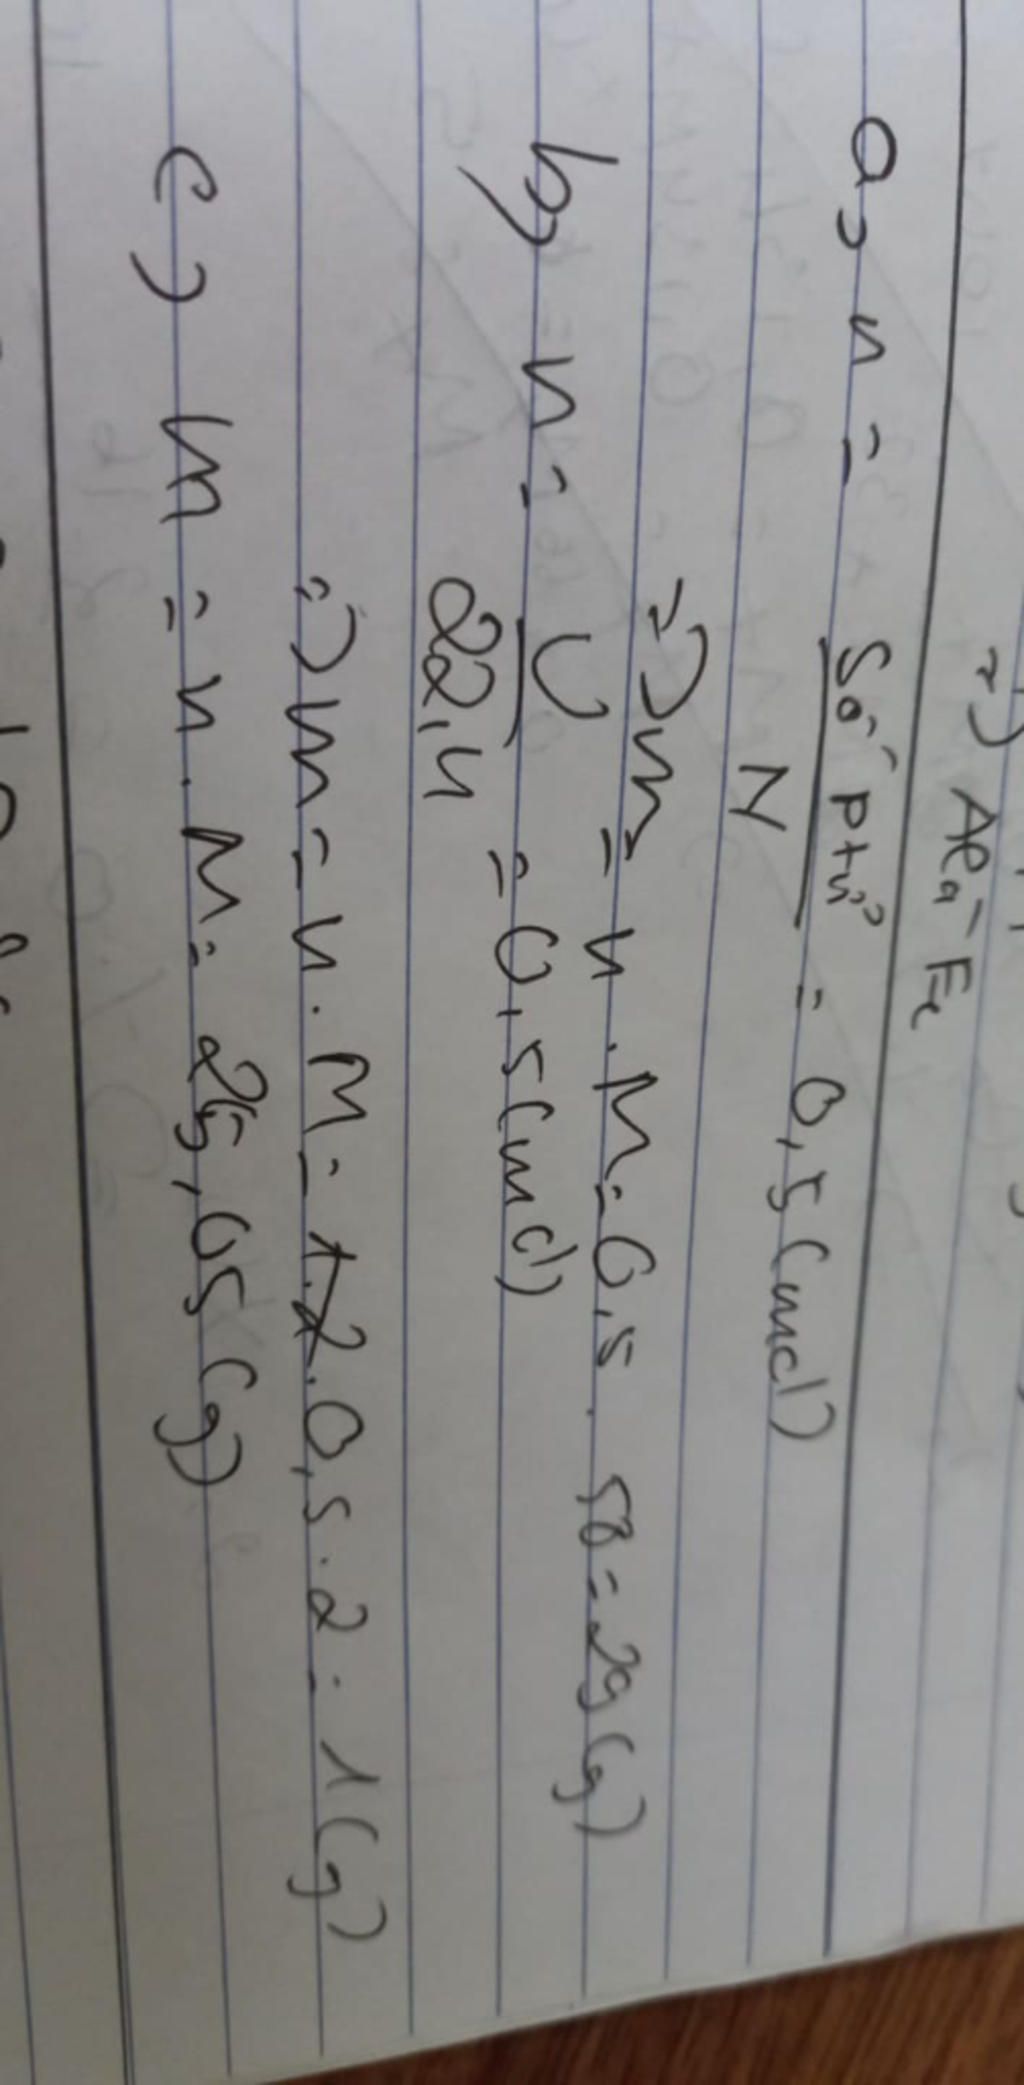 a) n = Số ptử / N = 0,5 (mol)
=> m = n . M = 0,5 . 58 = 29 (g)
b) n = V / 22,4 = 0,5 (mol)
=> m = n . M = 0,5 . 2 = 1 (g)
c) m = n . M = 25,05 (g)